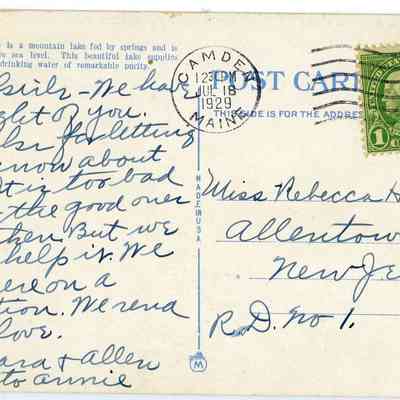 is a mountain lake fed by springs and is
sea level. This beautiful lake supplies
drinking water of remarkable purity.
Girls - We have
of you.
for letting
know about
too bad
the good over
then. But we
help it. We
here on a
We send
love.
+ Allen
to annie
CAMDEN
12 30 PM
JUL 18
1929
MAINE
POST CARD
THIS SIDE IS FOR THE ADDRESS
1
MADE IN U.S.A.
Miss Rebecca
Allentow
New Je
R.D. No 1.
M